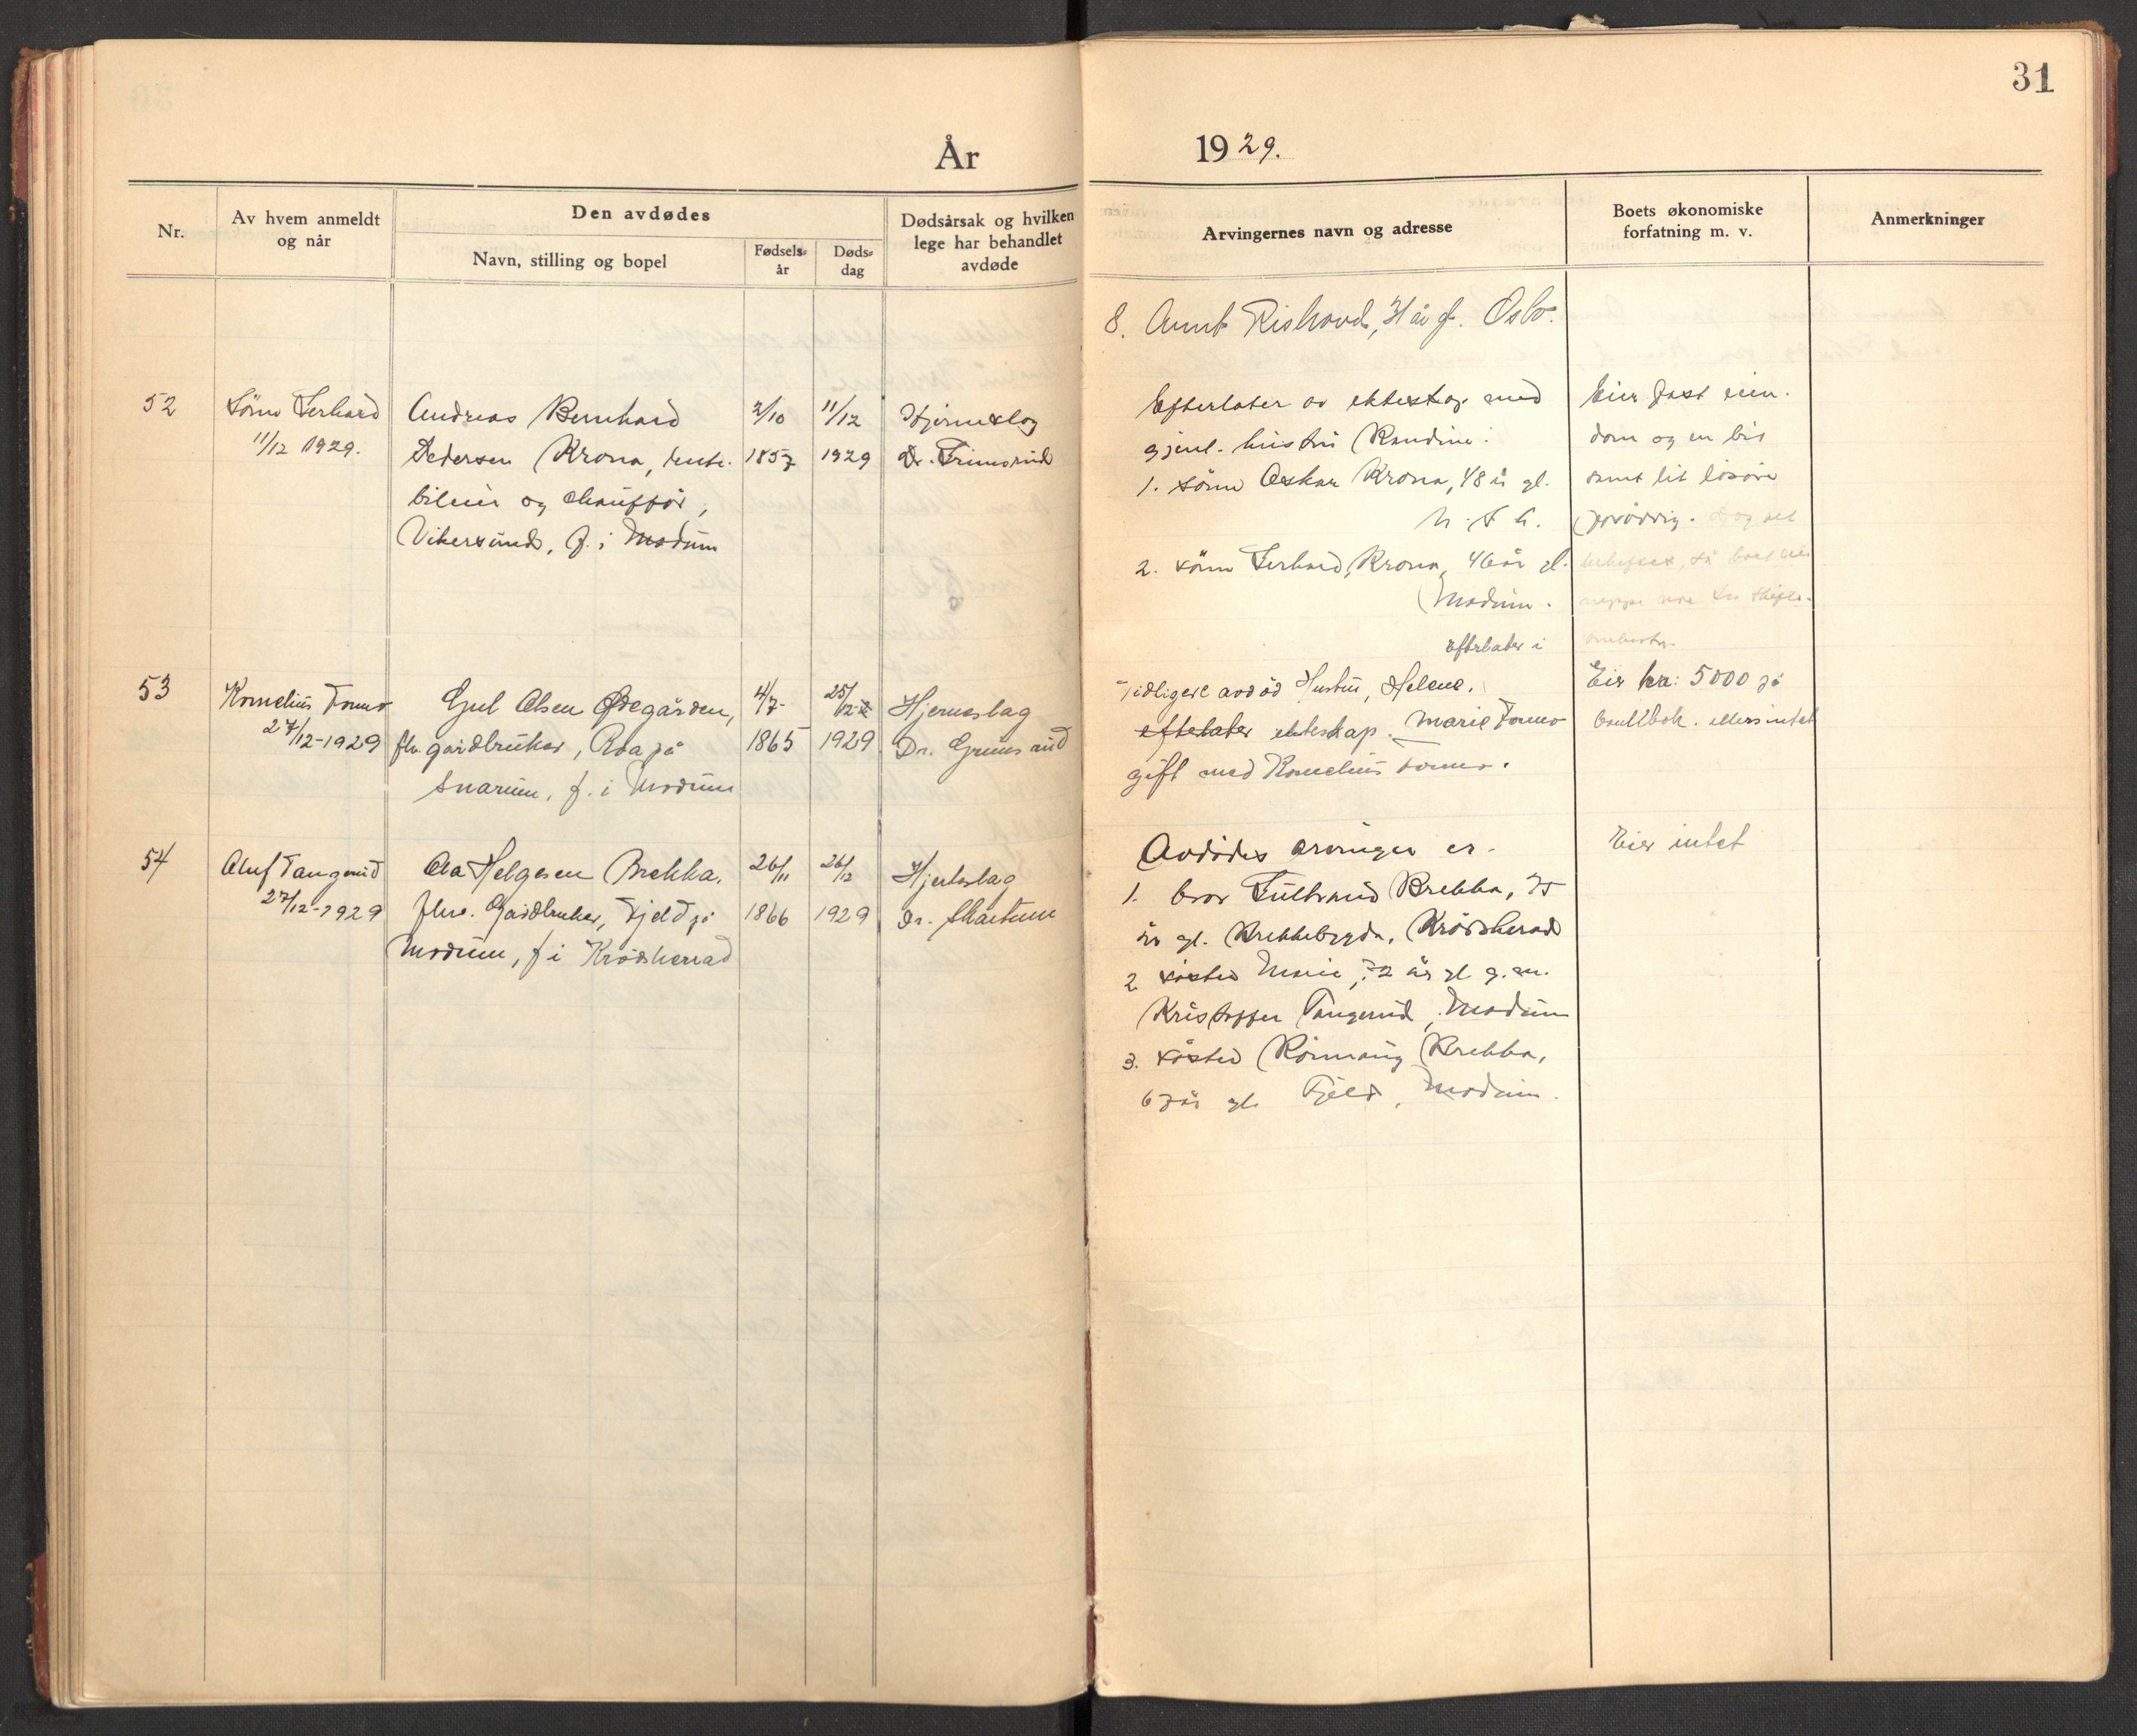 31
År 1929.
Nr.
Av hvem anmeldt
og når
Den avdødes
Navn, stilling og bopel
Fødsels=
år
Døds=
dag
Dødsårsak og hvilken
lege har behandlet
avdøde
Arvingernes navn og adresse
Boets økonomiske
forfatning m. v.
Anmerkninger
8. Rishovd, 31 år gl. Oslo.
52
Sönn Gerhard
11/12 1929.
Andreas Bernhard
Pedersen Krona,
bileier og chaufför,
Vikersund, f. i Modum
2/10
1857
11/12
1929
Hjerneslag
Dr. Grimsrud
Efterlater av ekteskap med
gjenl. hustru Randine:
1. sönn Oskar Krona, 48 år gl.
U. S. A.
2. sönn Gerhard Krona, 46 år gl.
Modum.
Eier fast eien-
dom og en bil
samt lit lösöre
forövrig. Dog
53
Kornelius Tomo
27/12-1929
Gul Olsen Ødegården,
fhv. gårdbruker, Roa på
Snarum, f. i Modum
4/7-
1865
25/12
1929
Hjerneslag
Dr. Grimsrud
efterlater i
Tidligere avdöd Hustru, Helene.
efterlater ekteskap. Marie Tomo
gift med Kornelius Tomo.
Eier kr: 5000 på
bankbok. ellers intet
54
Oluf Tangerud
27/12-1929
Ola Helgesen Brekka,
fhv. Gårdbruker, Fjeld på
Modum, f i Krødsherrad
26/11
1866
26/12
1929
Hjerteslag
Dr. Skartum
Avdödes arvinger er.
1. bror Gulbrand Brekka, 75
år gl. Brekkebygda, Krödsherad
2 söster Marie, 72 år gl g. m.
Kristoffer Tangerud, Modum
3. söster Rönnaug Brekka,
67 år gl. Fjeld, Modum.
Eier intet